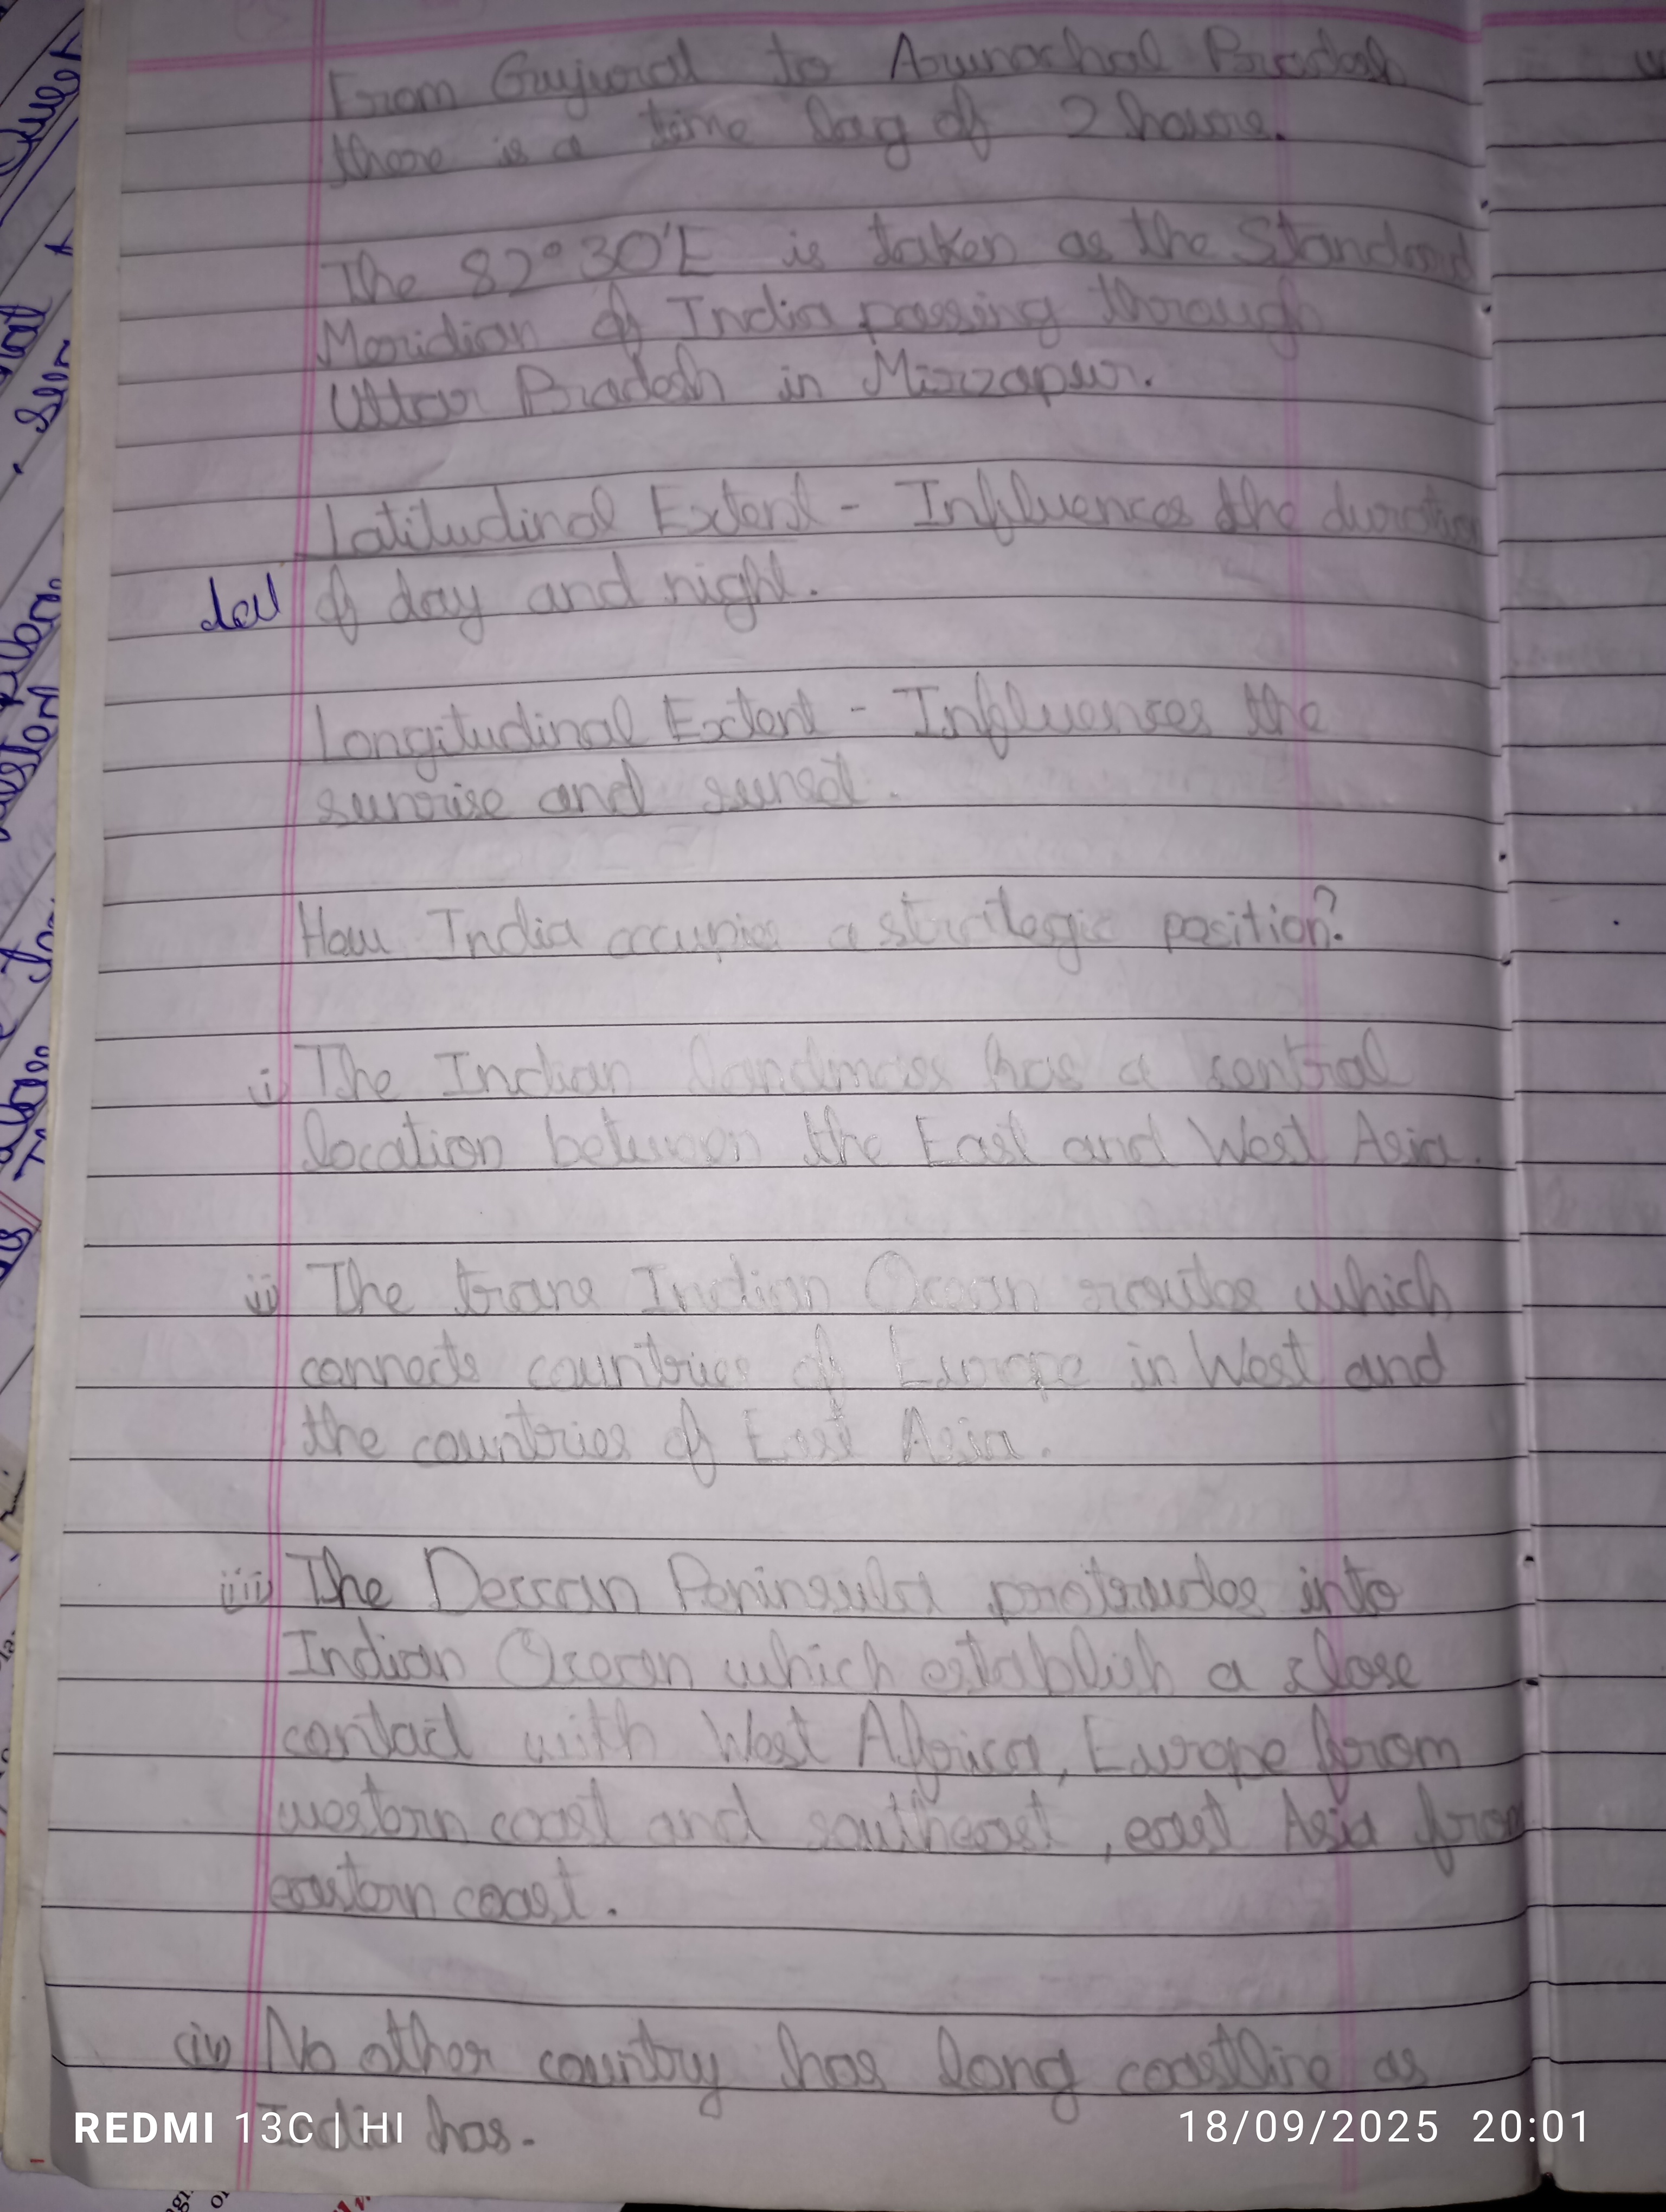 From Gujurat to Arunachal Pradesh
there is a time lag of 2 hours.
The 82°30'E is taken as the Standard
Meridian of India passing through
Uttar Pradesh in Mirzapur.
Latitudinal Extent - Influences the duration
of day and night.
Longitudinal Extent - Influences the
sunrise and sunset.
How India occupies a strategic position?
i) The Indian landmass has a central
location between the East and West Asia.
ii) The trans Indian Ocean routes which
connects countries of Europe in West and
the countries of East Asia.
iii) The Deccan Peninsula protrudes into
Indian Ocean which establish a close
contact with West Africa, Europe from
western coast and southeast, east Asia from
eastern coast.
(iv) No other country has long coastline as
India has.
REDMI 13C | HI
18/09/2025 20:01